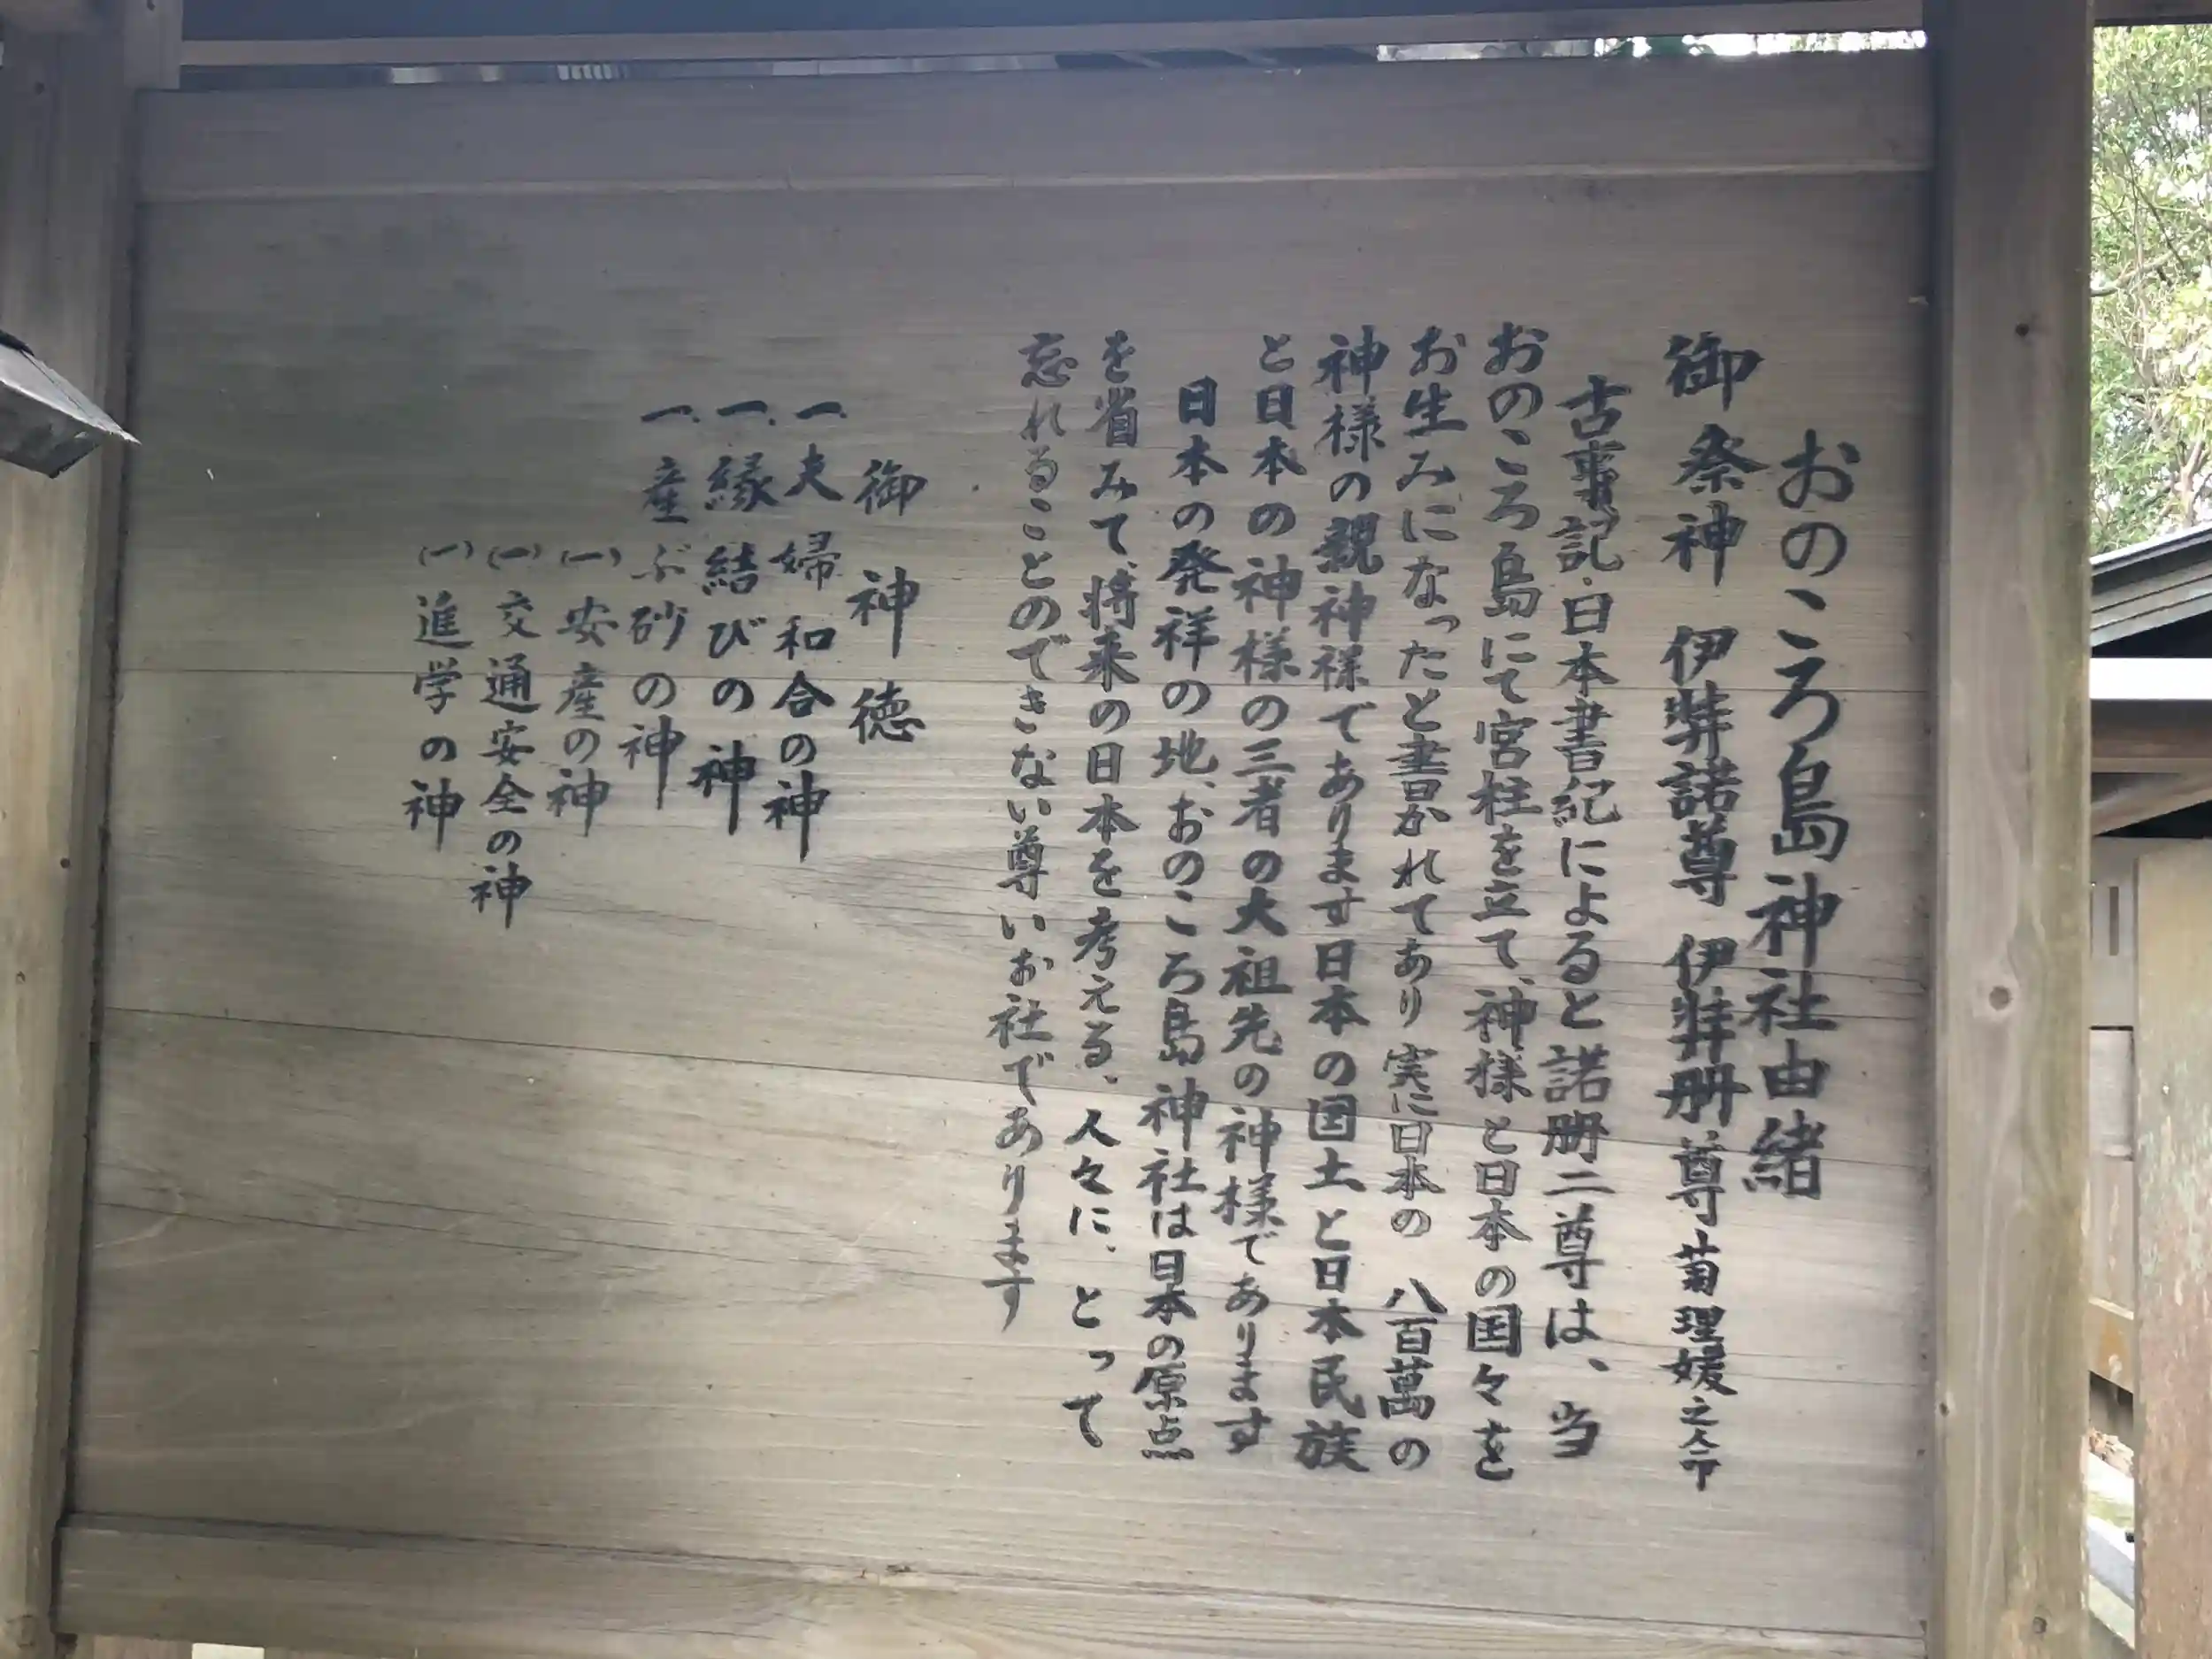 おのころ島神社由緒
御祭神 伊弉諾尊 伊弉册尊・菊理媛之命
古事記・日本書紀によると諾册二尊は、当
おのころ島にて宮柱を立て、神様と日本の国々を
お生みになったと書かれてあり 実に日本の 八百萬の
神様の親神様であります日本の国土と日本民族
と日本の神様の三者の大祖先の神様であります
日本の発祥の地、おのころ島神社は日本の原点
を省みて、将来の日本を考える、人々に、とって
忘れることのできない尊いお社であります
御神徳
一.夫婦和合の神
一.縁結びの神
一.産ぶ砂の神
(一)安産の神
(一)交通安全の神
(一)進学の神